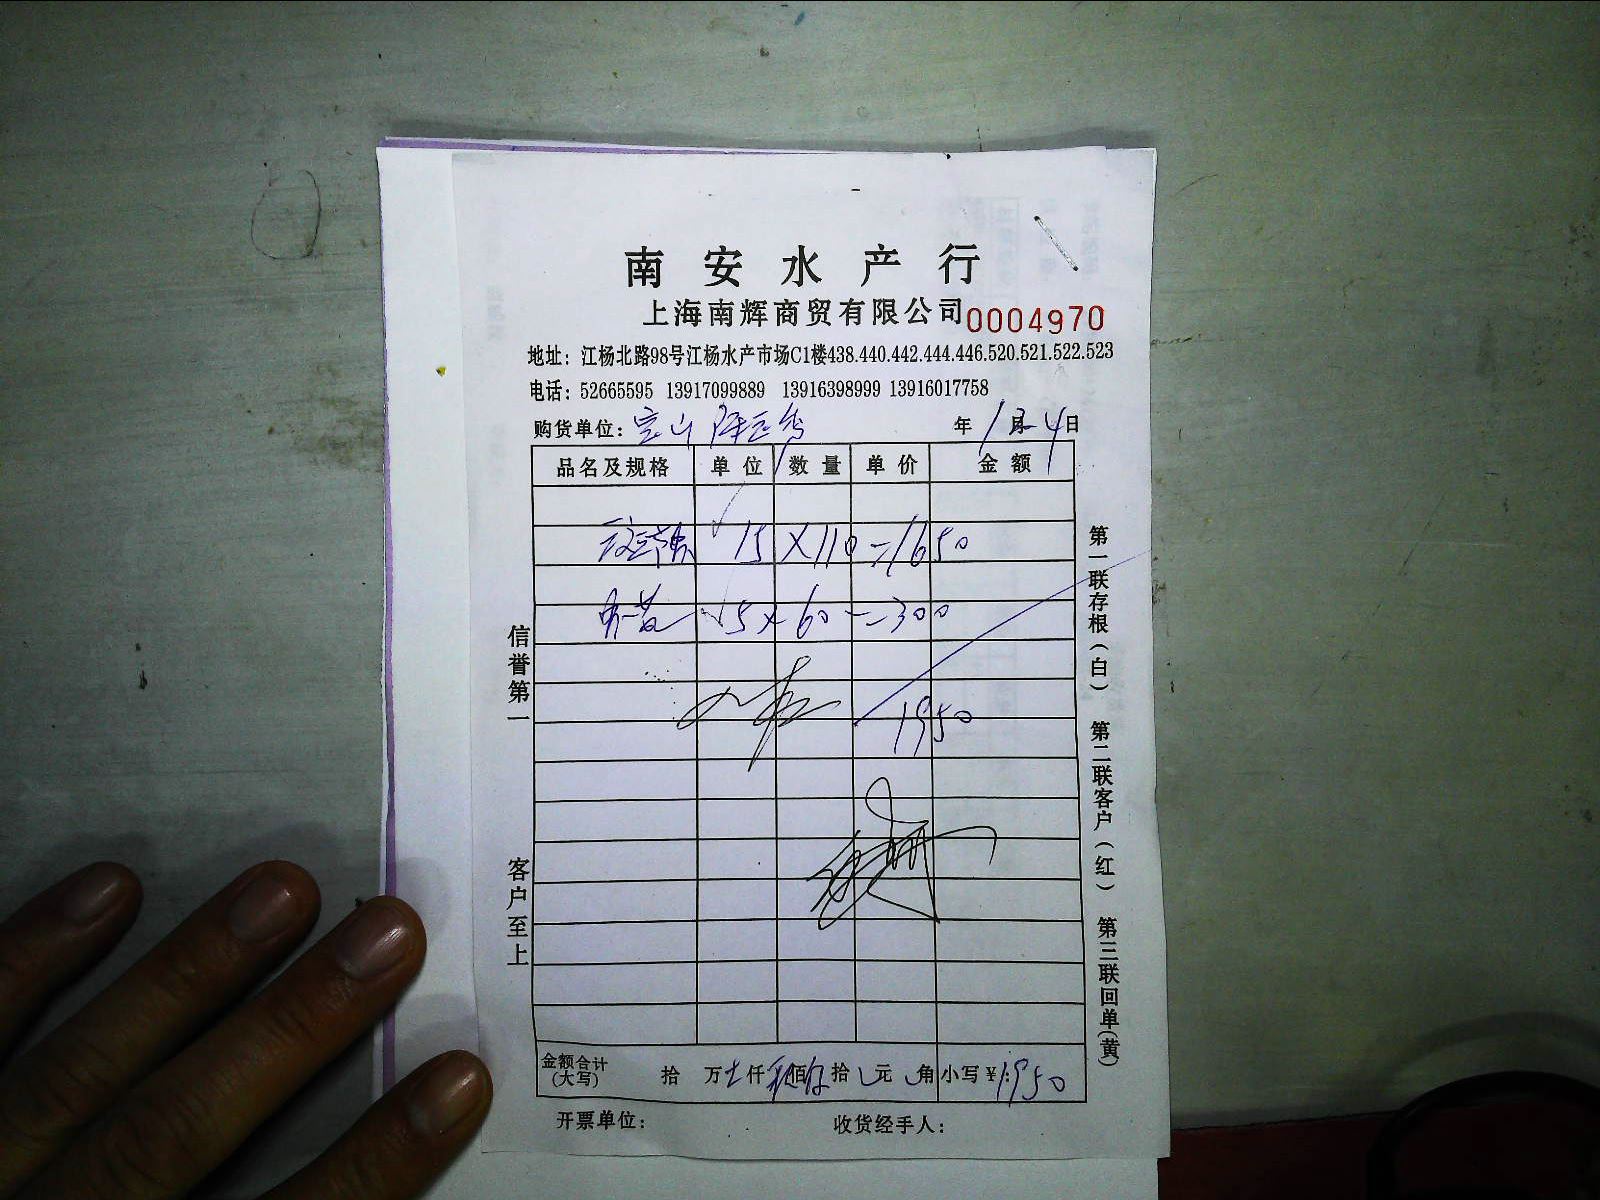 南安水产行
上海南辉商贸有限公司 0004970
地址：江杨北路98号江杨水产市场C1楼438.440.442.444.446.520.521.522.523
电话：52665595 13917099889 13916398999 13916017758
购货单位：宝山 年1月4日
品名及规格 单位 数量 单价 金额
15×110=1650
5×60=300
1950
金额合计(大写) 拾 万 仟 佰 拾 元 角 小写￥：1950
开票单位： 收货经手人：
信誉第一 客户至上
第一联存根(白) 第二联客户(红) 第三联回单(黄)